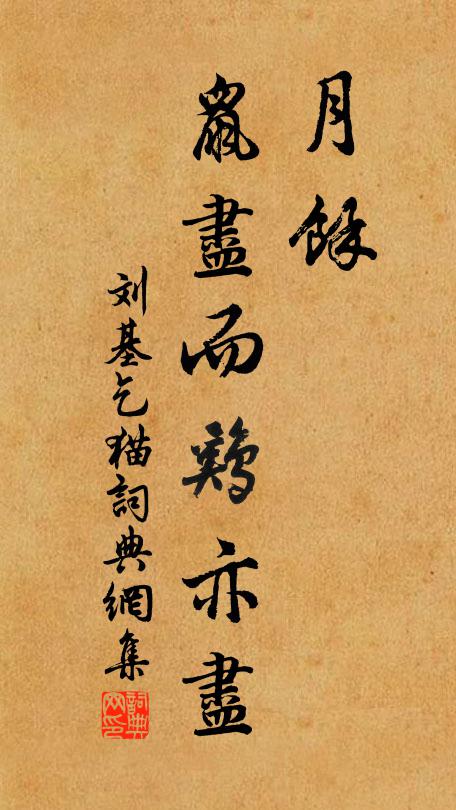 月餘
鼠盡而鷄亦盡
刘基乞猫詞典網集
詞典網印